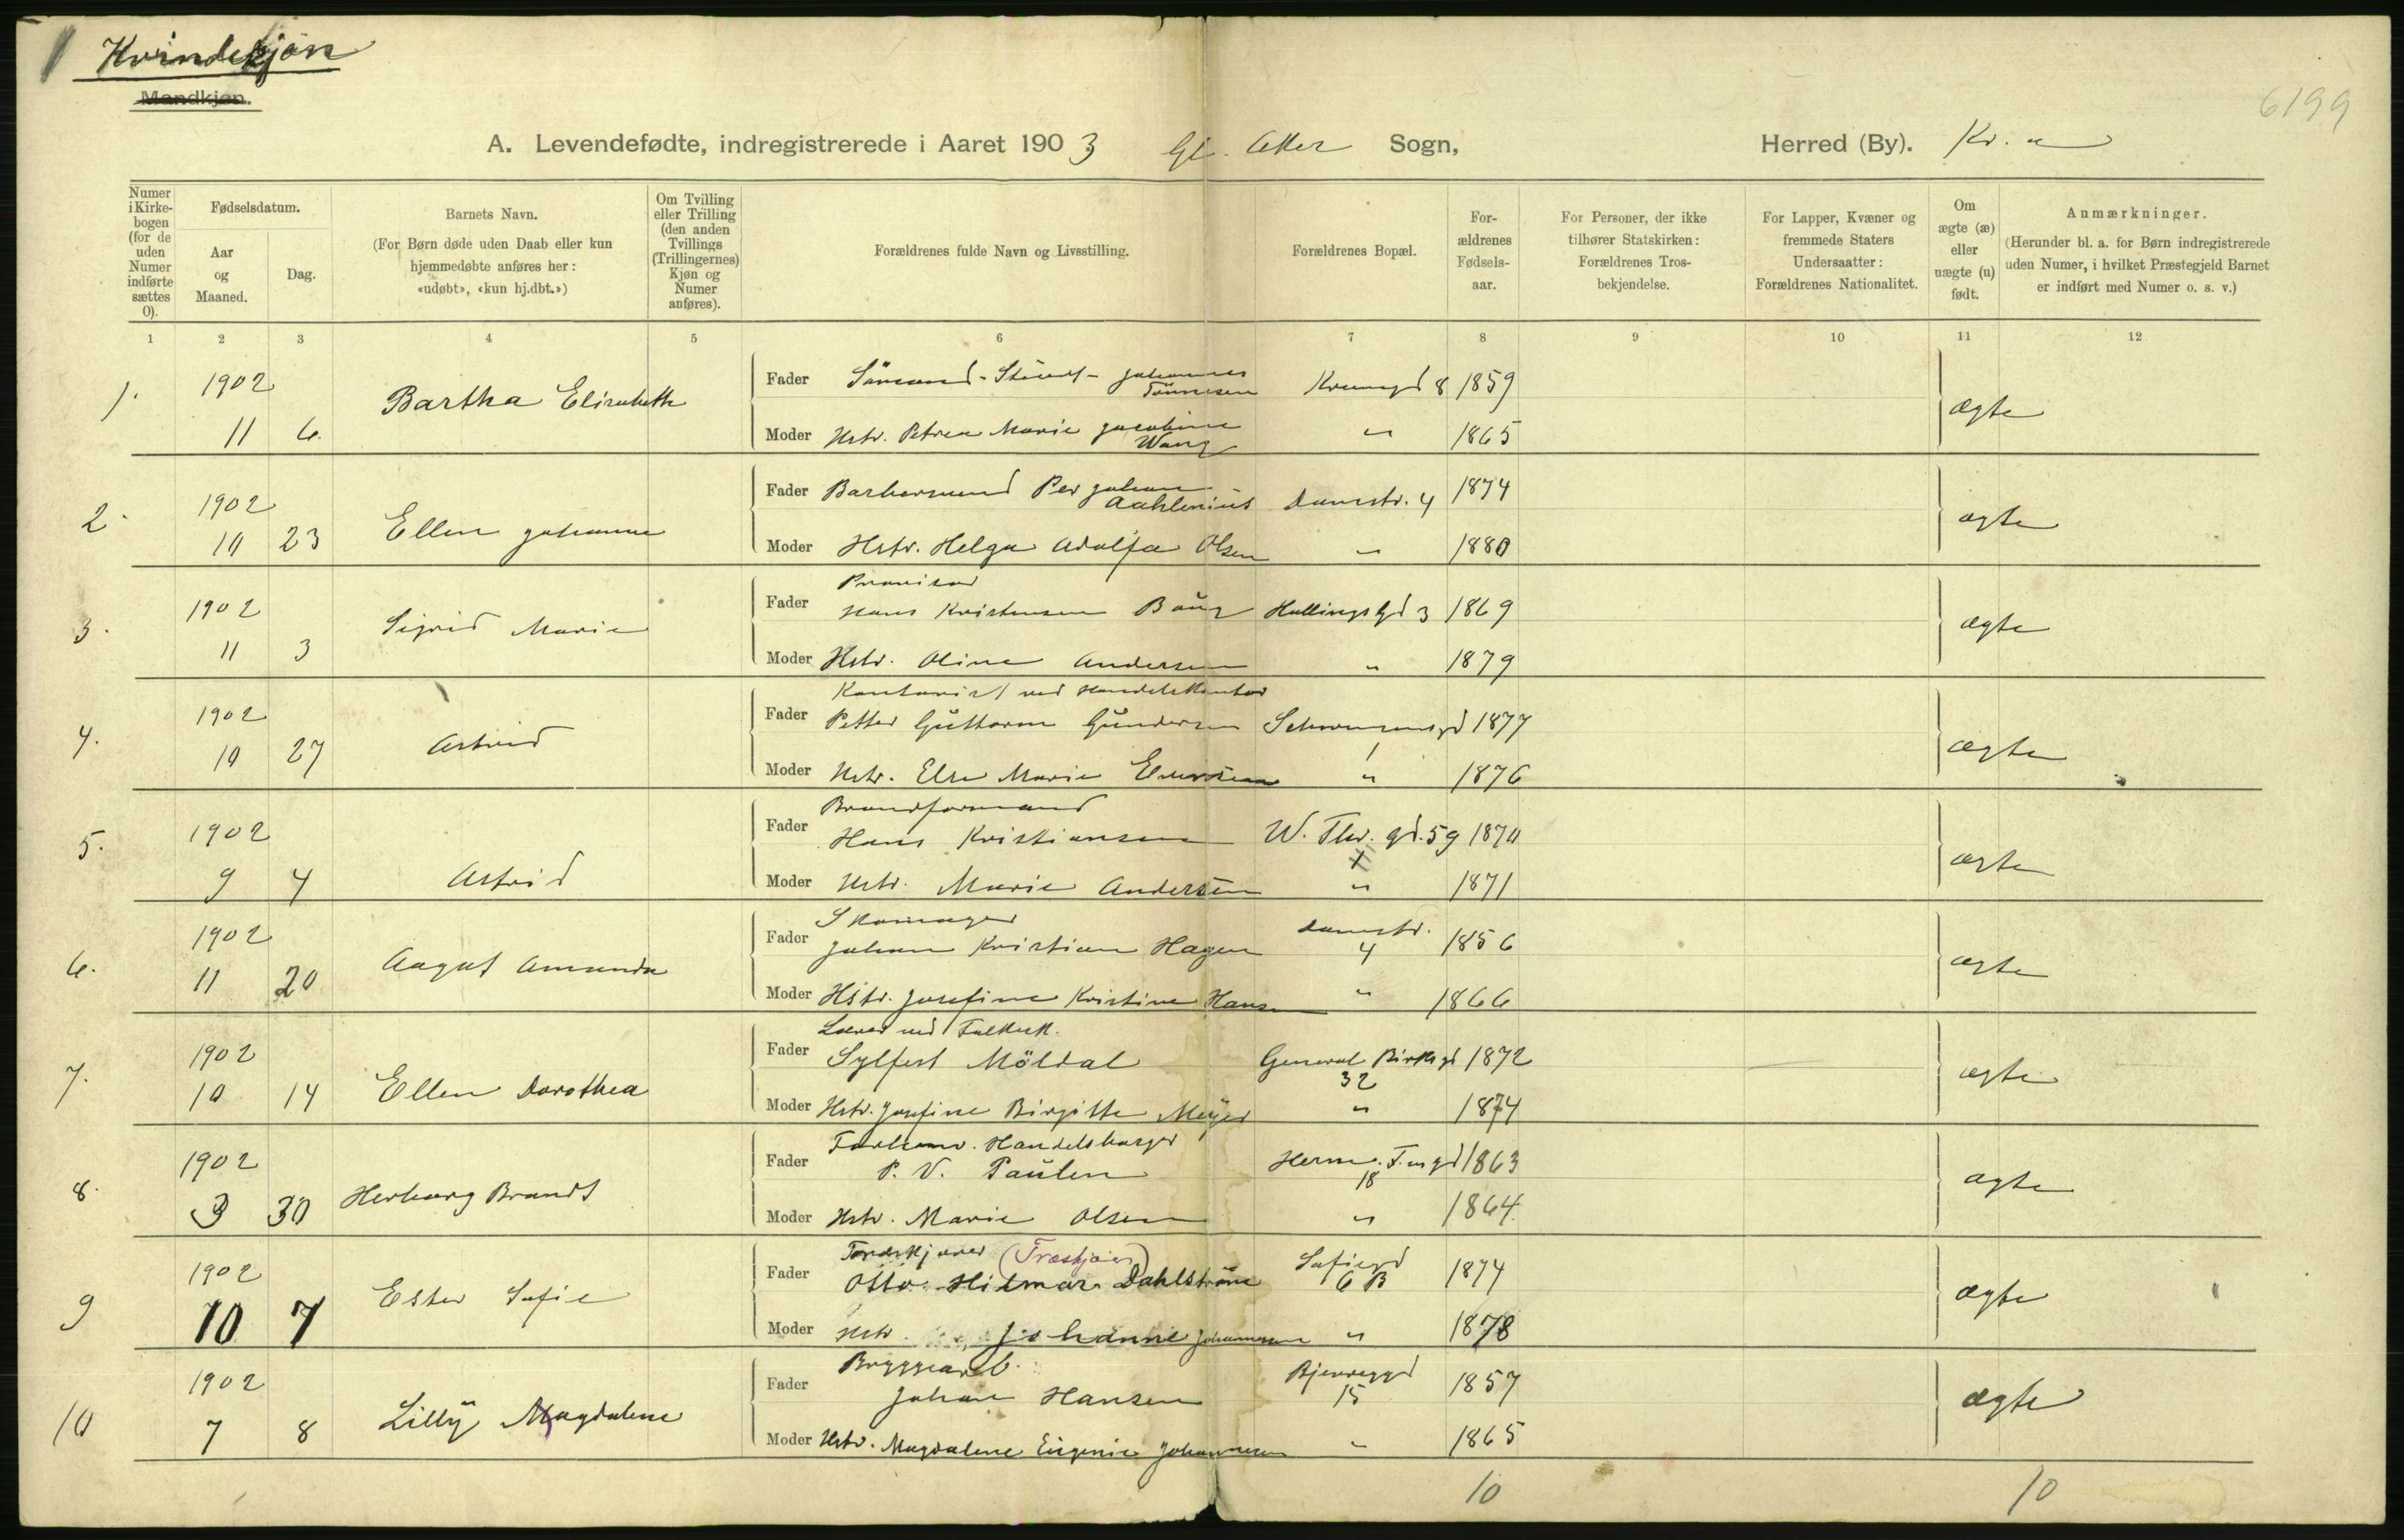 Kvindekjøn
Mandkjøn.
6199
A. Levendefødte, indregistrerede i Aaret 1903 Gl. Aker Sogn, Herred (By). Kr. a
Numer i Kirke-bogen (for de uden Numer indførte sættes 0).
Fødselsdatum.
Aar og Maaned.
Dag.
Barnets Navn.
(For Børn døde uden Daab eller kun hjemmedøbte anføres her: «udøbt», «kun hj.dbt.»)
Om Tvilling eller Trilling (den anden Tvillings (Trillingernes) Kjøn og Numer anføres).
Forældrenes fulde Navn og Livsstilling.
Forældrenes Bopæl.
For-ældrenes Fødsels-aar.
For Personer, der ikke tilhører Statskirken: Forældrenes Tros-bekjendelse.
For Lapper, Kvæner og fremmede Staters Undersaatter: Forældrenes Nationalitet.
Om ægte (æ) eller uægte (u) født.
Anmærkninger.
(Herunder bl. a. for Børn indregistrerede uden Numer, i hvilket Præstegjeld Barnet er indført med Numer o. s. v.)
1 2 3 4 5 6 7 8 9 10 11 12
1. 1902 11 6 Bartha Elisabeth
Fader Sömand - Johannes Tönnesen 8 1859
Moder Hstr. Petrea Marie Jacobine Wang " 1865
ægte
2. 1902 10 23 Ellen Johanne
Fader Barbersvend Per Johan Aahlenius Damstr. 4 1874
Moder Hstr. Helga Adolfa Olsen " 1880
ægte
3. 1902 11 3 Sigrid Marie
Fader Provisor
Hans Kristensen Baug Hallingsgd 3 1869
Moder Hstr. Oline Andersen " 1879
ægte
4. 1902 10 27 Astrid
Fader Kontorist ved Handelskontor
Petter Guttorm Gundersen Schwensensgd 1 1877
Moder Hstr. Else Marie " 1876
ægte
5. 1902 9 4 Astrid
Fader Brandformand
Hans Kristiansen W. Thr. gd. 59 1870
Moder Hstr. Marie Andersen " 1871
ægte
6. 1902 11 20 Aagot Amanda
Fader Skomager
Johan Kristian Hagen Damstr. 4 1856
Moder Hstr. Josefine Kristine Hansen " 1866
ægte
7. 1902 10 14 Ellen Dorothea
Fader Lærer ved Folkesk.
Sylfest Möldal General Birksgd 32 1872
Moder Hstr. Josefine Birgitte Meyer " 1874
ægte
8. 1902 3 30 Herborg Brandt
Fader Forhenv. Handelsborger
P. V. Paulen Herm. F. msgd 18 1863
Moder Hstr. Marie Olsen " 1864.
ægte
9 1902 10 7 Ester Sofie
Fader (Træskjærer)
Otto Hilmar Dahlström Sofiesgd 6 B 1874
Moder Hstr. Johanne Johannesen " 1878
ægte
10 1902 7 8 Lilly Magdalene
Fader Bryggearb.
Johan Hansen Bjerregd 15 1857
Moder Hstr. Magdalene Eugenie Johannesen " 1865
ægte
10 10